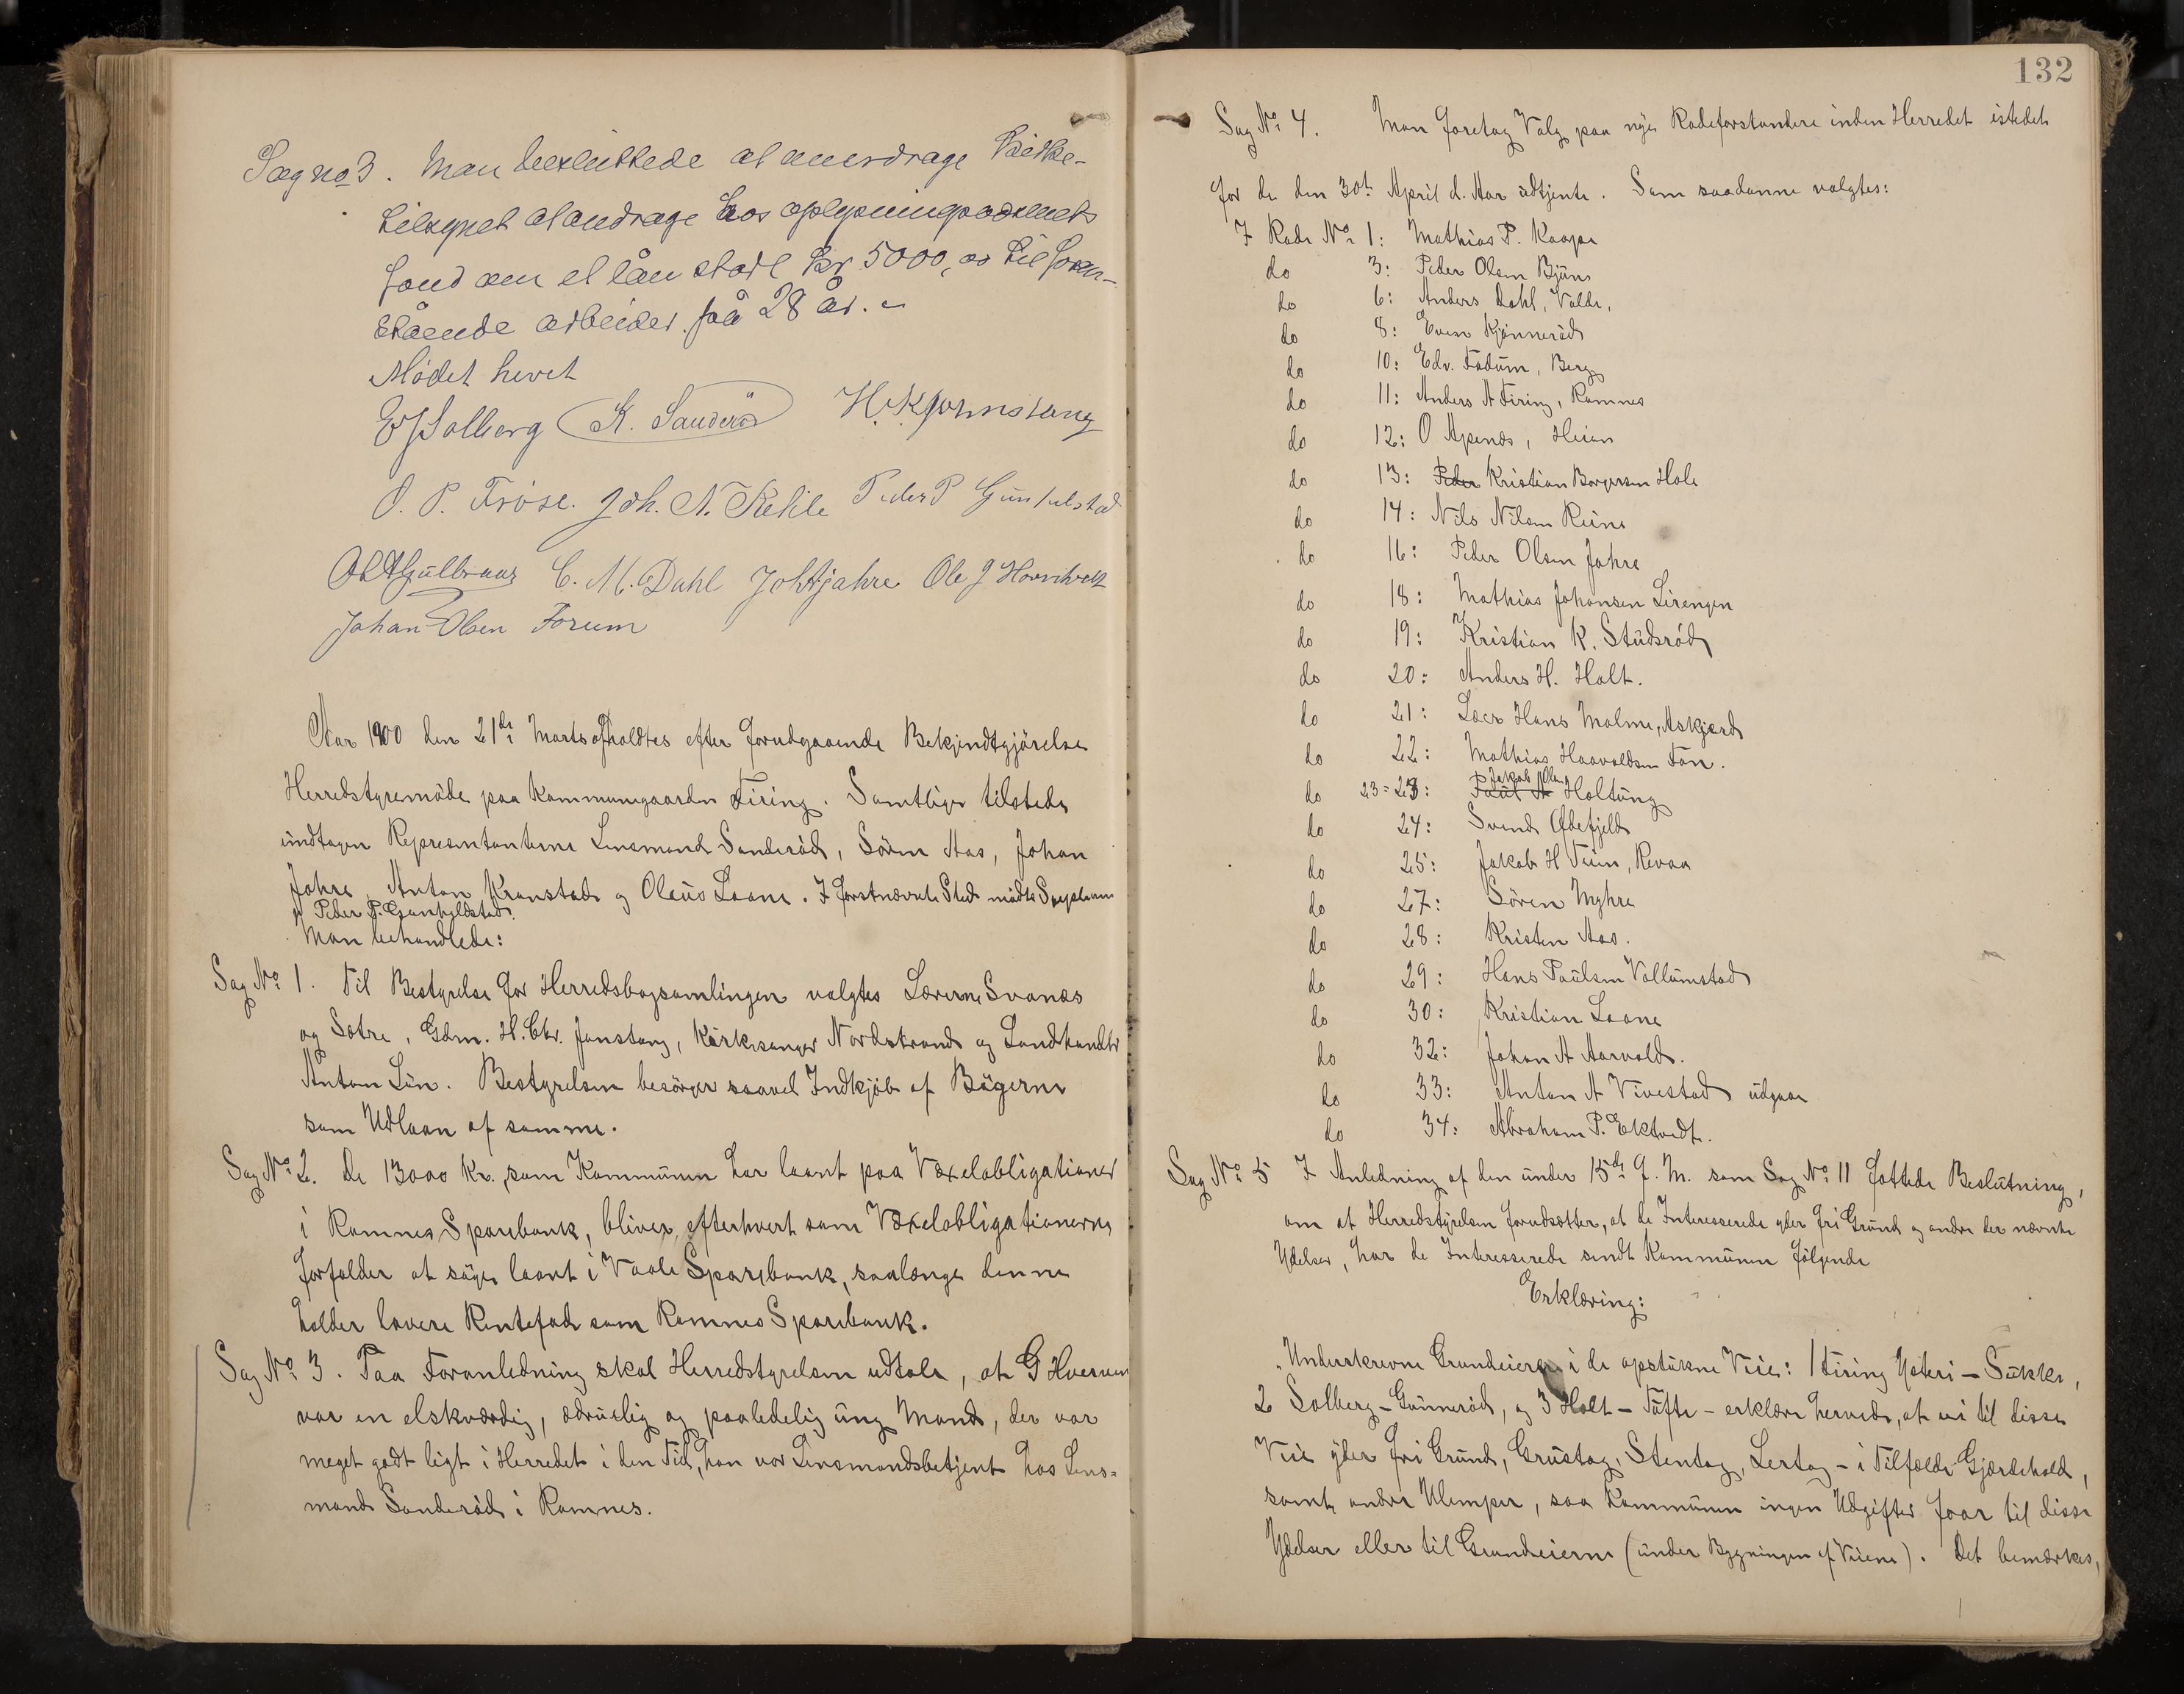 Sag no 3. Man besluttede at anmodrage Kirke-
tilsynet at andrage hos oplysningsvæsenets
fond om et lån stort kr 5000,00 til foran-
stående arbeider på 28 år. -
Mödet hevet
E Solberg K. Sanderöd H. K. Jonstang
O. P. Fröse. Joh. N. Rehle Peder P Gunhilstad
C. M. Dahl Joh A Jahre Ole J Horntvedt
Johan Olsen Forum
Aar 1900 den 21de Marts afholdtes efter forudgaaende Bekjendtgjörelse
Herredstyremöde paa Kommunegaarden Firing. Samtlige tilstede
undtagen Repræsentanterne Lensmand Sanderöd, Sören Aas, Johan
Jahre, Anton Kranstad og Olaus Laane. I förstnævntes Sted mödte Suppleant
Peder P. Gunhildstad.
Man behandlede:
Sag No 1. Til Bestyrelse for Herredsbogsamlingen valgtes Lærerne Svanæs
og Sætre, Gdm. H. Chr. Jonstang, Kirkesanger Nordstrand og Landhandler
Anton Lin. Bestyrelsen besörger saavel Indkjöb af Bögerne
som Udlaan af samme.
Sag No 2. De 13000 Kr., som Kommunen har laant paa Vexelobligationer
i Ramnes Sparebank, bliver, efterhvert som Vexelobligationerne
forfalder at söges laant i Vaale Sparebank, saalænge denne
holder lavere Rentefod som Ramnes Sparebank.
Sag No 3. Paa Foranledning skal Herredstyrelsen udtale, at G Hverven
var en elskværdig, ædruelig og paalidelig ung Mand, der var
meget godt ligt i Herredet i den Tid, han var Lensmandsbetjent hos Lens=
mand Sanderöd i Ramnes.
132
Sag No 4. Man foretog Valg paa nye Rodeforstandere inden Herredet istedet
for de den 30te April d. Aar udtjente. Som saadanne valgtes:
I Rode No 1: Mathias P. Kaape
do 3: Peder Olsen Bjune
do 6: Anders Dahl, Valde,
do 8: Even Kjönneröd
do 10: Edv. Fadum, Berg
do 11: Anders A Firing, Ramnes
do 12: O Apenæs, Heian
do 13: Peder Kristian Borgersen Hole
do 14: Nils Nilsen Reine
do 16: Peder Olsen Jahre
do 18: Mathias Johansen Lirengen
do 19: Kristian K. Studsröd
do 20: Anders H. Holt.
do 21: Lærer Hans Malme, Askjerd
do 22: Mathias Haavaldsen Fon.
Jakob Olsen
do 23=23: Paul A Holtung
do 24: Svend Ödefjeld
do 25: Jakob H Tuin, Revaa
do 27: Sören Myhre
do 28: Kristen Aas.
do 29: Hans Paulsen Vollumstad
do 30: Kristian Laane
do 32: Johan A Aarvold.
do 33: Anton A Vivestad udgaar
do 34: Abraham P. Ektvedt.
Sag No 5 I Anledning af den under 15de f. M. som Sag No 11 fattede Beslutning,
om at Herredstyrelsen forudsætter, at de Interesserede yder fri Grund og andre der nævnte
Ydelser, har de Interesserede sendt Kommunen fölgende
Erklæring:
"Underskrevne Grundeiere i de opstukne Veie: 1 Firing Ysteri - Sukke,
2 Solberg - Gunneröd, og 3 Holt - Tufte - erklære herved, at vi til disse
Veie yder fri Grund, Grustag, Stentag, Lertag - i Tilfælde Gjærdehold,
samt andre Ulemper, saa Kommunen ingen Udgifter faar til disse
Ydelser eller til Grundeierne (under Bygningen af Veiene). Det bemærkes,